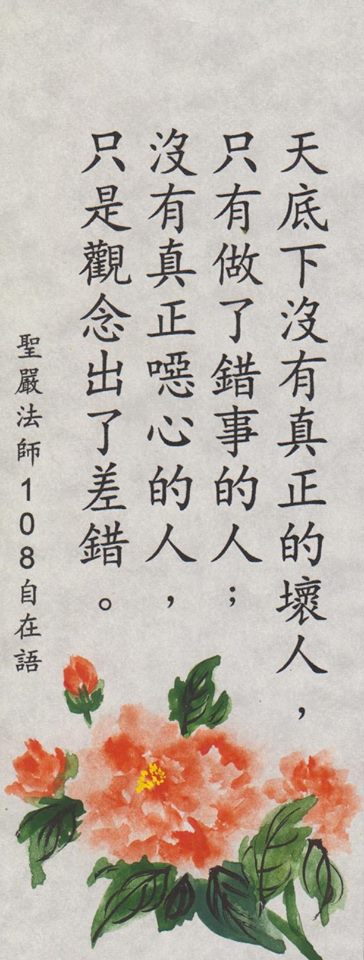 天底下沒有真正的壞人，
只有做了錯事的人；
沒有真正噁心的人，
只是觀念出了差錯。
聖嚴法師108自在語